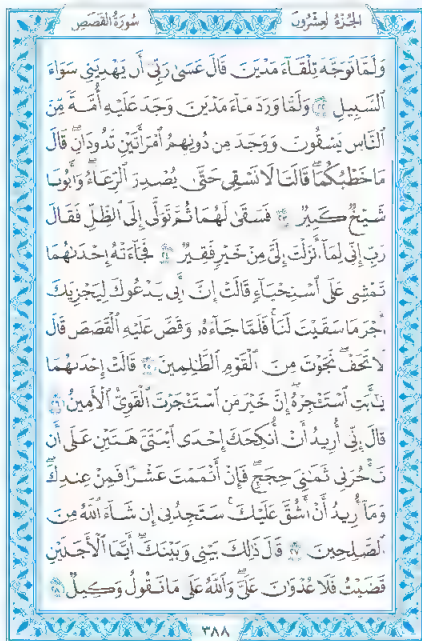 الجُزْءُ العِشْرُونَ سُورَةُ القَصَصِ
وَلَمَّا تَوَجَّهَ تِلْقَآءَ مَدْيَنَ قَالَ عَسَىٰ رَبِّىٓ أَن يَهْدِيَنِى سَوَآءَ
ٱلسَّبِيلِ ٢٢ وَلَمَّا وَرَدَ مَآءَ مَدْيَنَ وَجَدَ عَلَيْهِ أُمَّةً مِّنَ
ٱلنَّاسِ يَسْقُونَ وَوَجَدَ مِن دُونِهِمُ ٱمْرَأَتَيْنِ تَذُودَانِۖ قَالَ
مَا خَطْبُكُمَاۖ قَالَتَا لَا نَسْقِى حَتَّىٰ يُصْدِرَ ٱلرِّعَآءُۖ وَأَبُونَا
شَيْخٌ كَبِيرٌ ٢٣ فَسَقَىٰ لَهُمَا ثُمَّ تَوَلَّىٰٓ إِلَى ٱلظِّلِّ فَقَالَ
رَبِّ إِنِّى لِمَآ أَنزَلْتَ إِلَىَّ مِنْ خَيْرٍ فَقِيرٌ ٢٤ فَجَآءَتْهُ إِحْدَىٰهُمَا
تَمْشِى عَلَى ٱسْتِحْيَآءٍ قَالَتْ إِنَّ أَبِى يَدْعُوكَ لِيَجْزِيَكَ
أَجْرَ مَا سَقَيْتَ لَنَاۚ فَلَمَّا جَآءَهُۥ وَقَصَّ عَلَيْهِ ٱلْقَصَصَ قَالَ
لَا تَخَفْۖ نَجَوْتَ مِنَ ٱلْقَوْمِ ٱلظَّٰلِمِينَ ٢٥ قَالَتْ إِحْدَىٰهُمَا
يَٰٓأَبَتِ ٱسْتَـْٔجِرْهُۖ إِنَّ خَيْرَ مَنِ ٱسْتَـْٔجَرْتَ ٱلْقَوِىُّ ٱلْأَمِينُ ٢٦
قَالَ إِنِّىٓ أُرِيدُ أَنْ أُنكِحَكَ إِحْدَى ٱبْنَتَىَّ هَٰتَيْنِ عَلَىٰٓ أَن
تَأْجُرَنِى ثَمَٰنِىَ حِجَجٍۖ فَإِنْ أَتْمَمْتَ عَشْرًا فَمِنْ عِندِكَۖ
وَمَآ أُرِيدُ أَنْ أَشُقَّ عَلَيْكَۚ سَتَجِدُنِىٓ إِن شَآءَ ٱللَّهُ مِنَ
ٱلصَّٰلِحِينَ ٢٧ قَالَ ذَٰلِكَ بَيْنِى وَبَيْنَكَۖ أَيَّمَا ٱلْأَجَلَيْنِ
قَضَيْتُ فَلَا عُدْوَٰنَ عَلَىَّۖ وَٱللَّهُ عَلَىٰ مَا نَقُولُ وَكِيلٌ ٢٨
٣٨٨